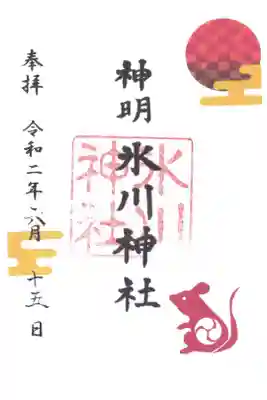 奉拝 令和二年六月 十五日
神明 氷川神社
氷川
神社